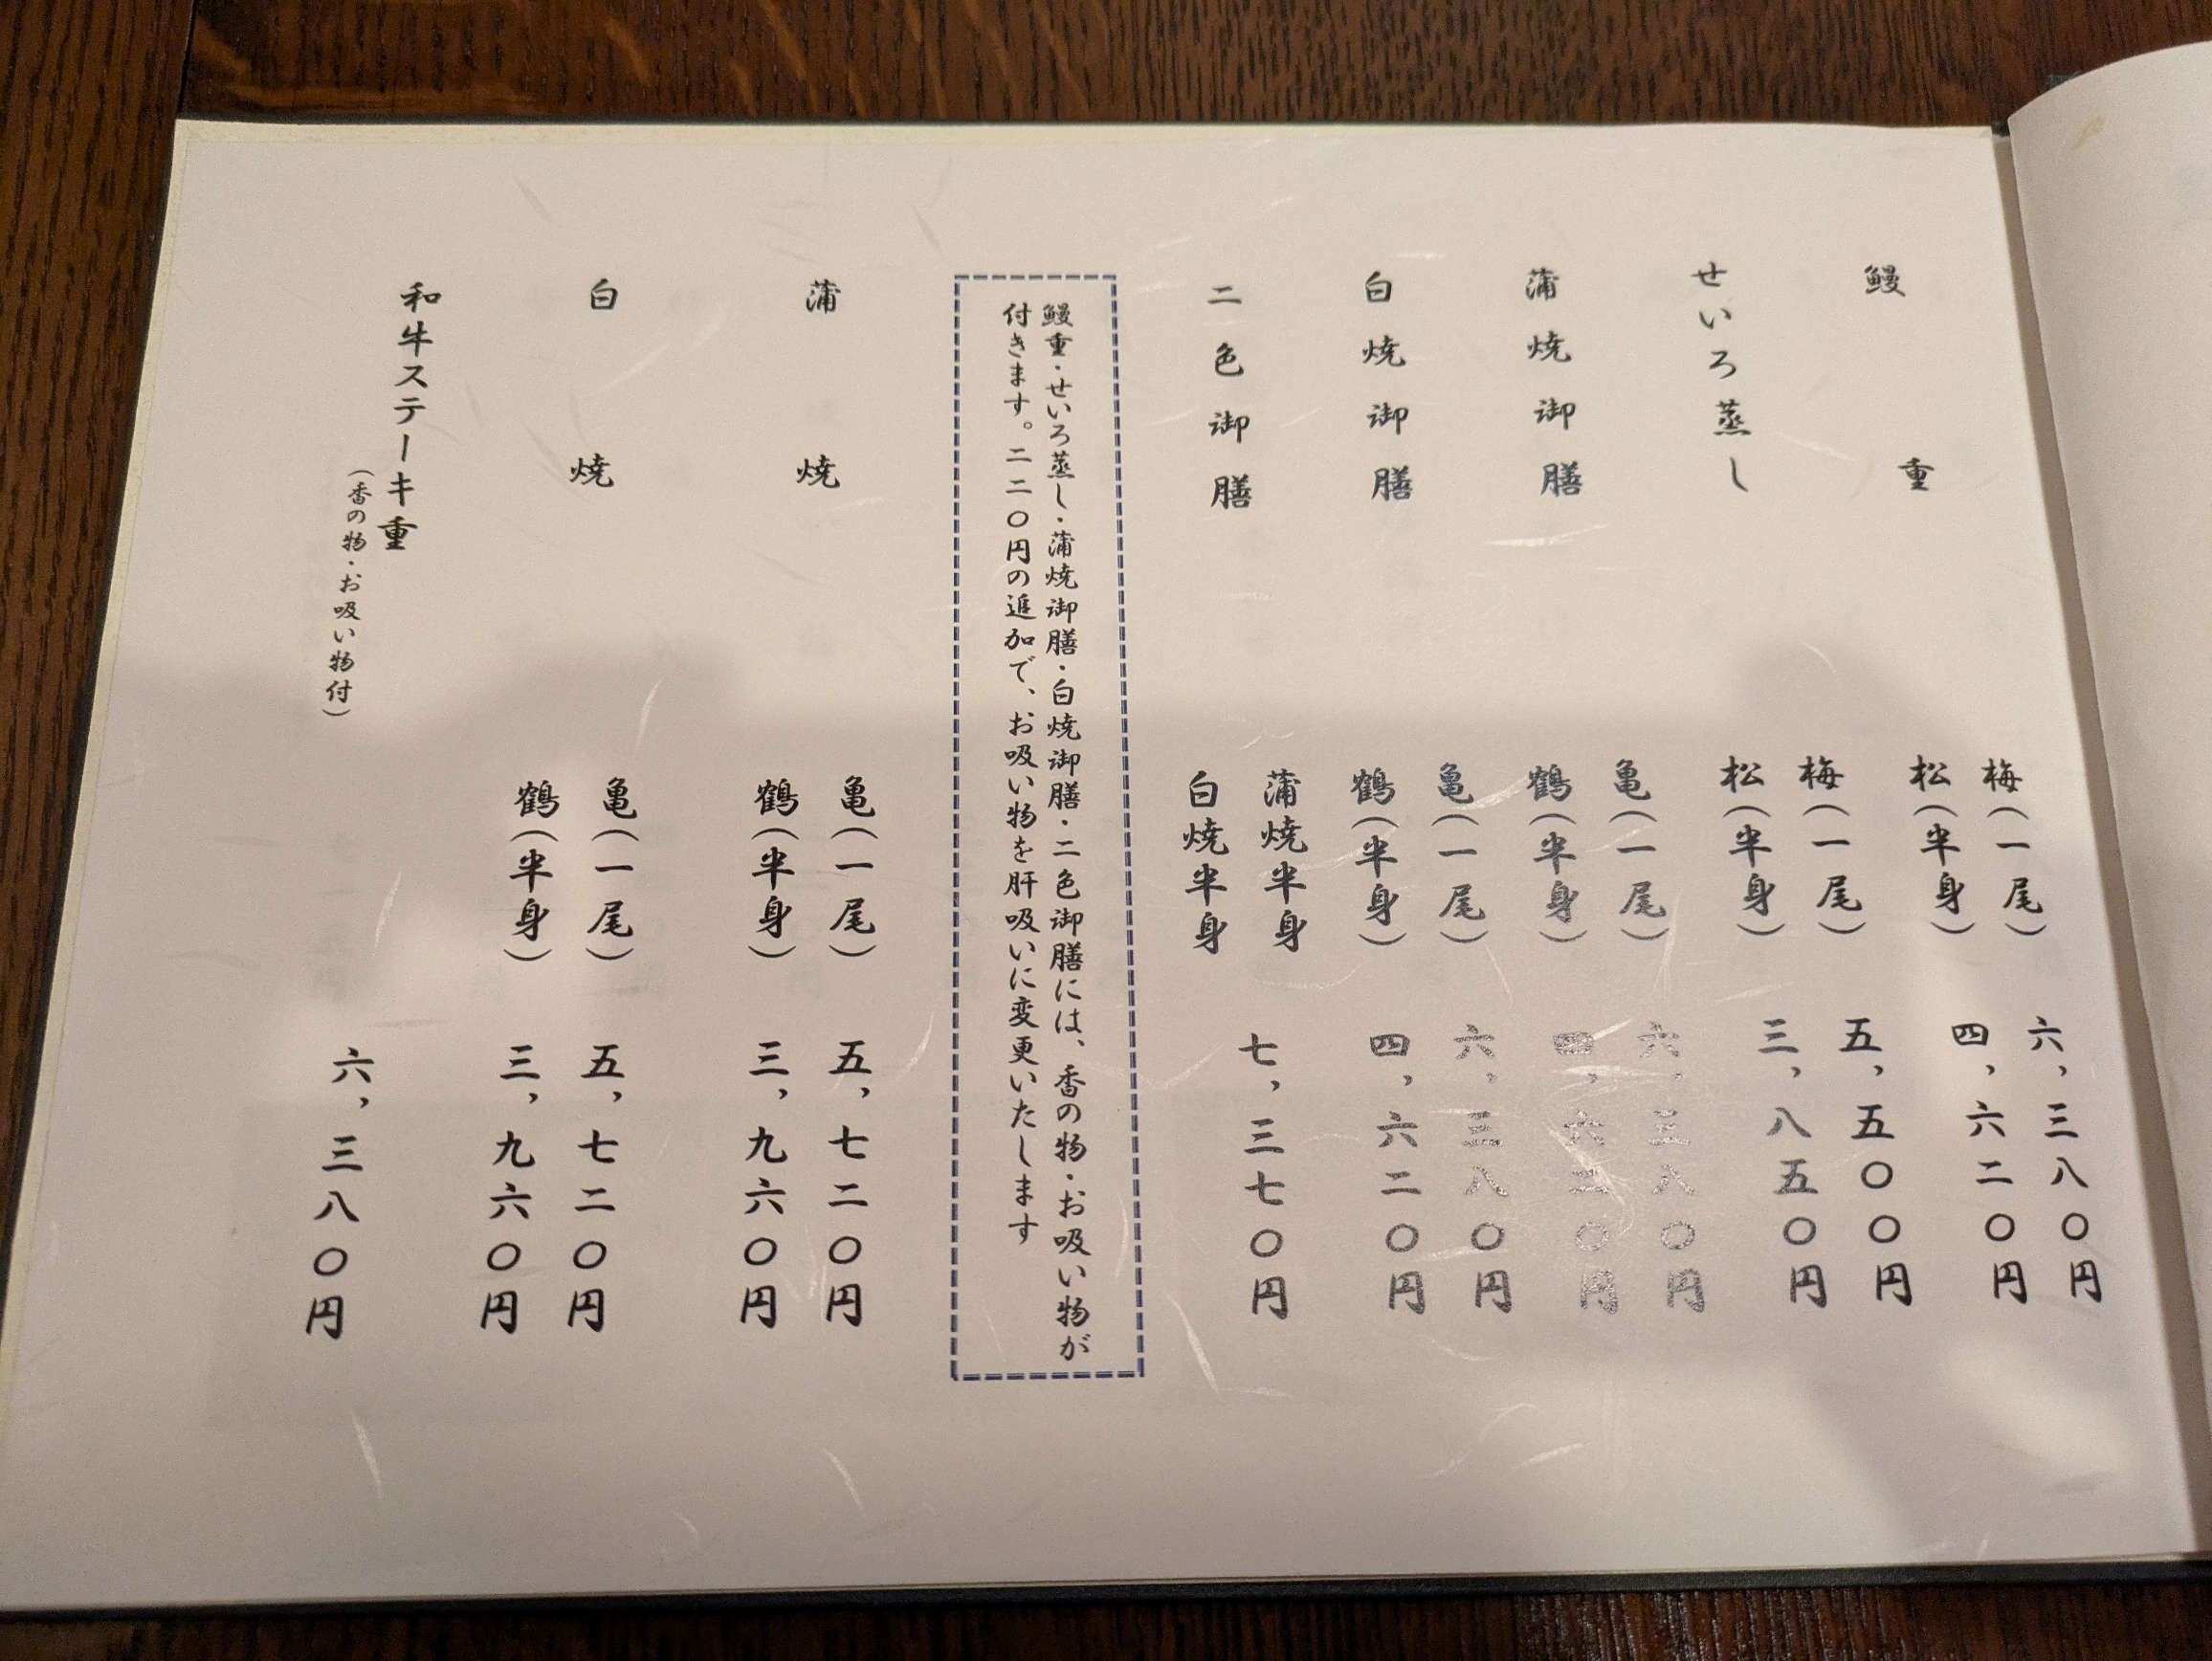 鰻重
梅（一尾）　六，三八〇円
松（半身）　四，六二〇円
せいろ蒸し
梅（一尾）　五，五〇〇円
松（半身）　三，八五〇円
蒲焼御膳
亀（一尾）　六，三八〇円
鶴（半身）　四，六二〇円
白焼御膳
亀（一尾）　六，三八〇円
鶴（半身）　四，六二〇円
二色御膳
蒲焼半身
白焼半身
七，三七〇円
鰻重・せいろ蒸し・蒲焼御膳・白焼御膳・二色御膳には、香の物・お吸い物が
付きます。二二〇円の追加で、お吸い物を肝吸いに変更いたします
蒲焼
亀（一尾）　五，七二〇円
鶴（半身）　三，九六〇円
白焼
亀（一尾）　五，七二〇円
鶴（半身）　三，九六〇円
和牛ステーキ重
（香の物・お吸い物付）
六，三八〇円